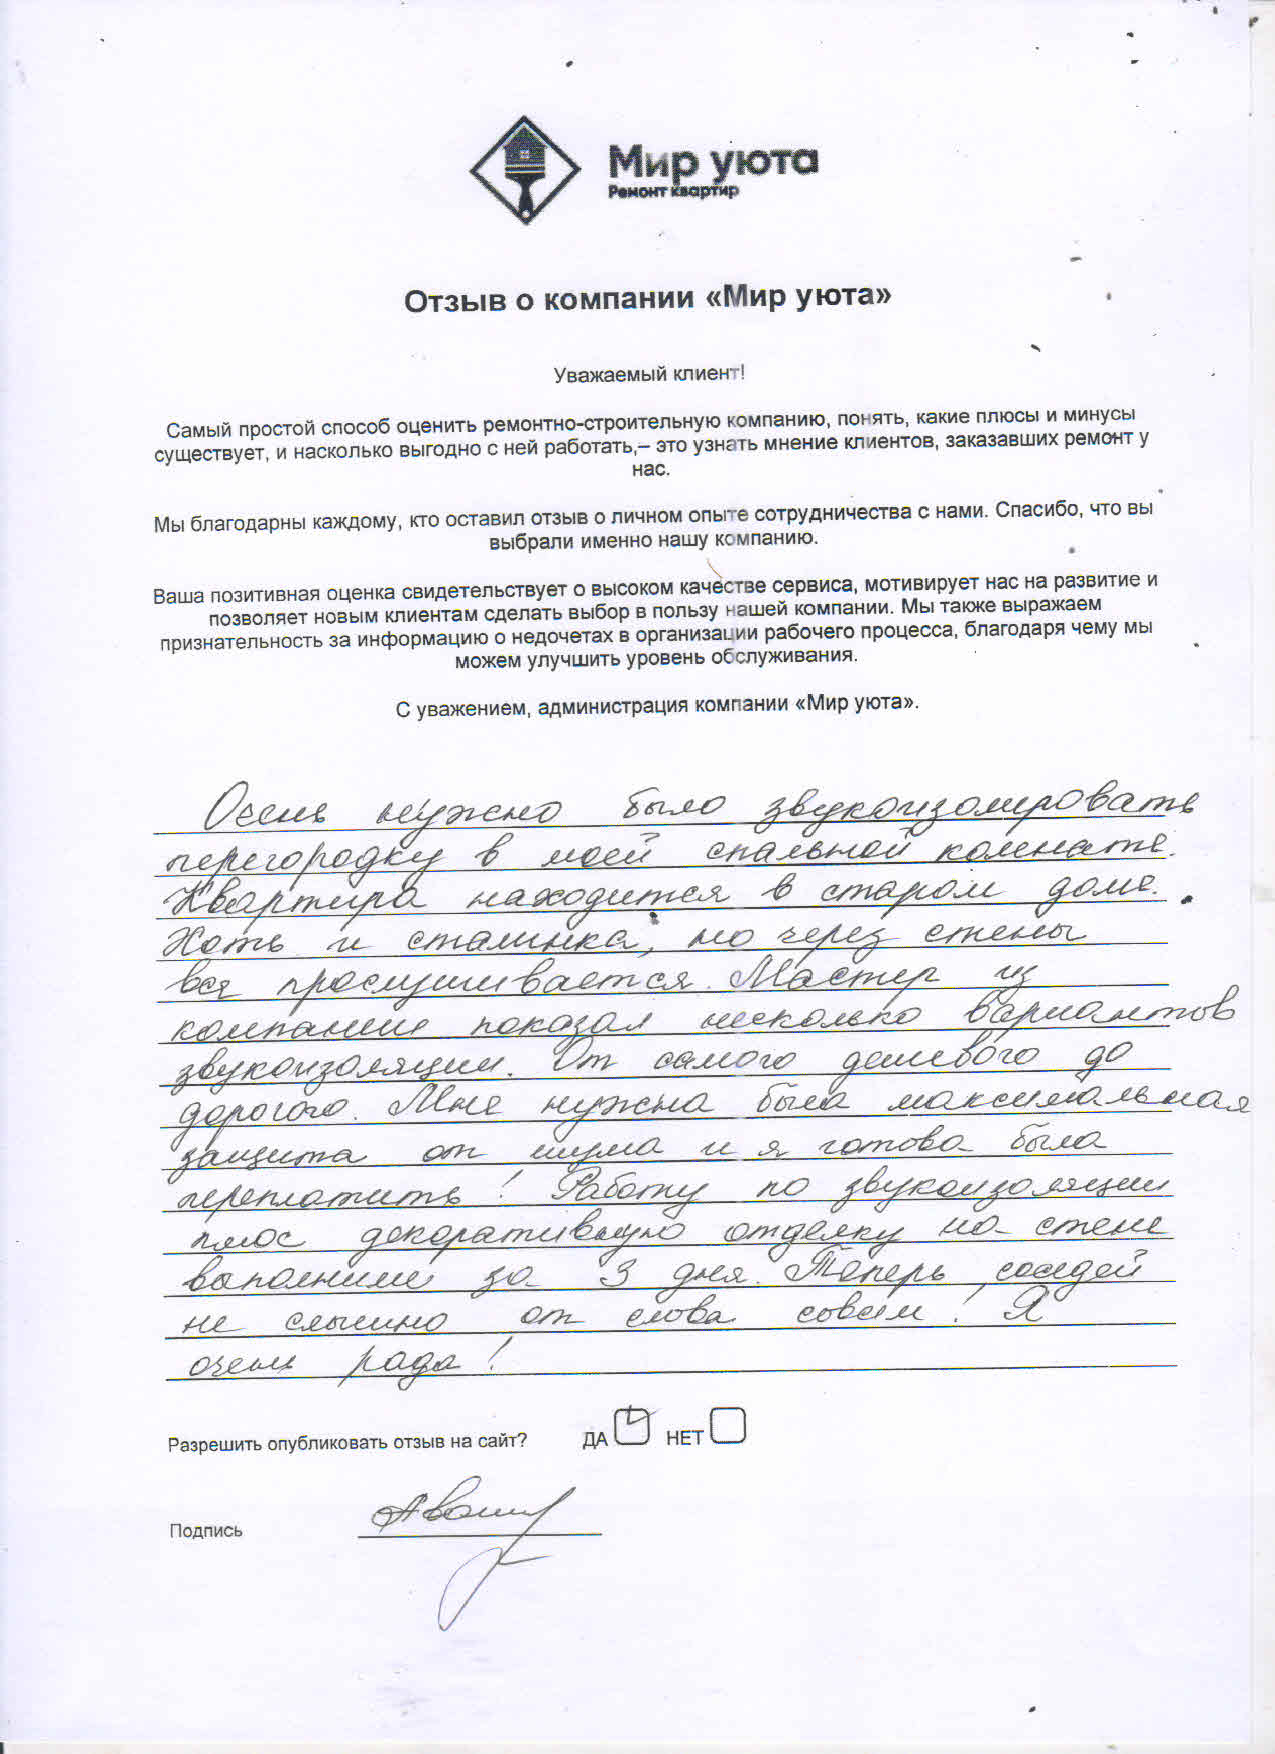 Мир уюта
Ремонт квартир
Отзыв о компании «Мир уюта»
Уважаемый клиент!
Самый простой способ оценить ремонтно-строительную компанию, понять, какие плюсы и минусы
существует, и насколько выгодно с ней работать,– это узнать мнение клиентов, заказавших ремонт у
нас.
Мы благодарны каждому, кто оставил отзыв о личном опыте сотрудничества с нами. Спасибо, что вы
выбрали именно нашу компанию.
Ваша позитивная оценка свидетельствует о высоком качестве сервиса, мотивирует нас на развитие и
позволяет новым клиентам сделать выбор в пользу нашей компании. Мы также выражаем
признательность за информацию о недочетах в организации рабочего процесса, благодаря чему мы
можем улучшить уровень обслуживания.
С уважением, администрация компании «Мир уюта».
Очень нужно было звукоизолировать
перегородку в моей спальной комнате.
Квартира находится в старом доме.
Хоть и сталинка, но через стены
все прослушивается. Мастер из
компании показал несколько вариантов
звукоизоляции. От самого дешевого до
дорогого. Мне нужна была максимальная
защита от шума и я готова была
переплатить! Работу по звукоизоляции
плюс декоративную отделку на стене
выполнили за 3 дня. Теперь соседей
не слышно от слова совсем! Я
очень рада!
Разрешить опубликовать отзыв на сайт? ДА НЕТ
Подпись